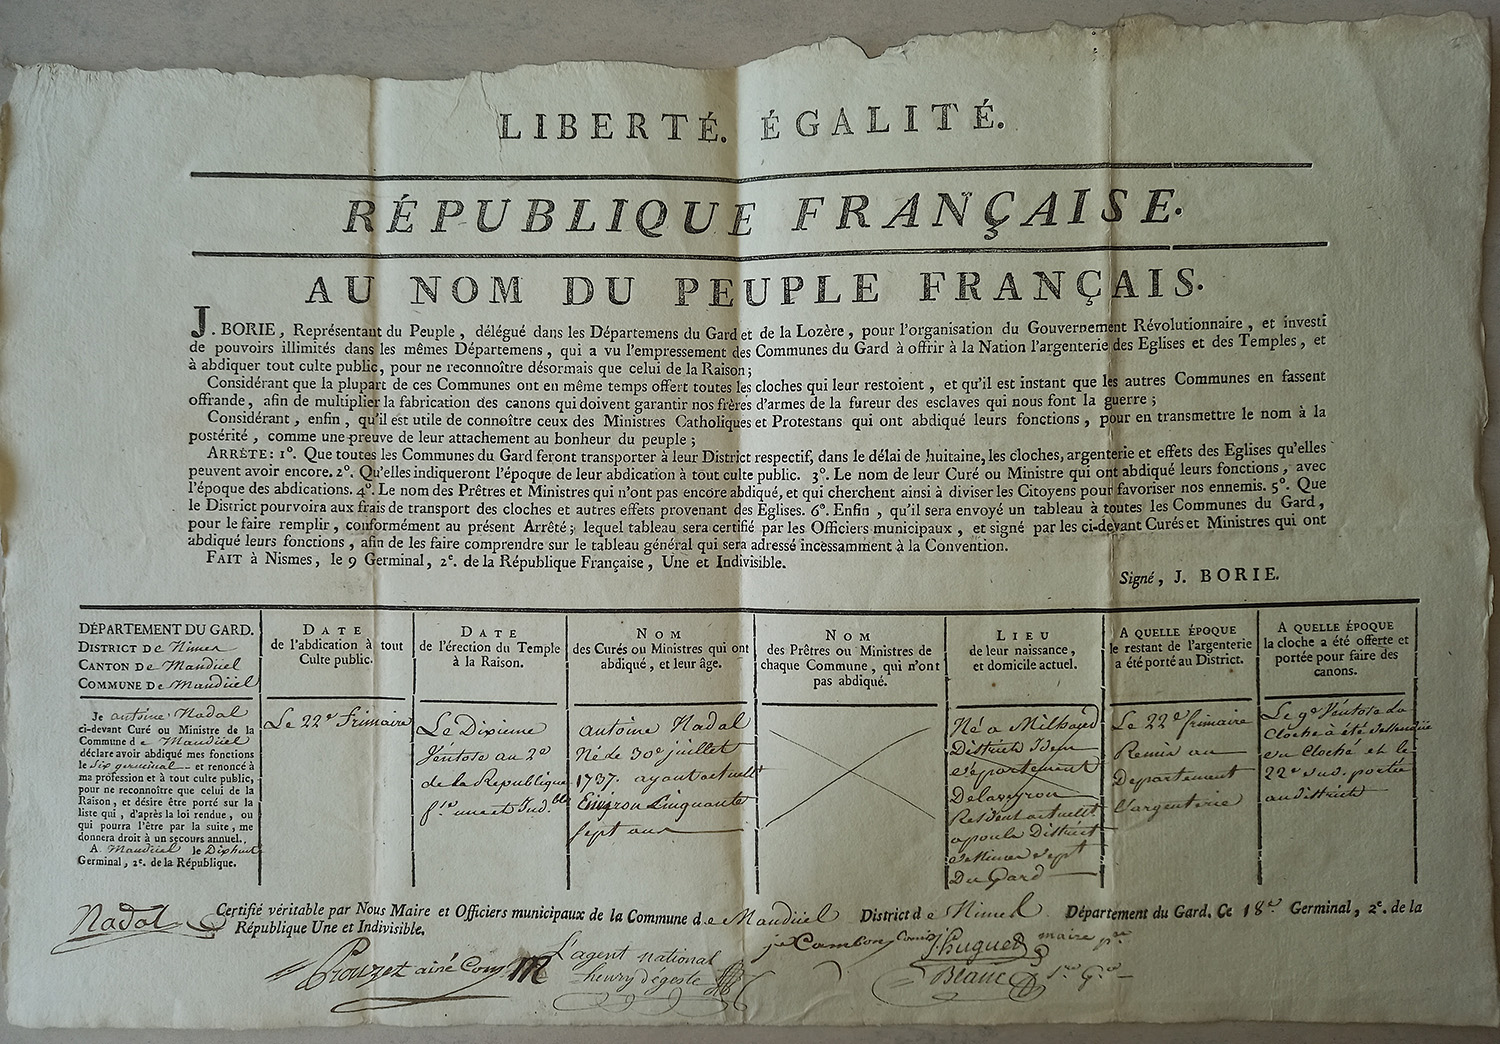 LIBERTÉ. ÉGALITÉ.
RÉPUBLIQUE FRANÇAISE.
AU NOM DU PEUPLE FRANÇAIS.
J. BORIE, Représentant du Peuple, délégué dans les Départemens du Gard et de la Lozère, pour l'organisation du Gouvernement Révolutionnaire, et investi
de pouvoirs illimités dans les mêmes Départemens, qui a vu l'empressement des Communes du Gard à offrir à la Nation l'argenterie des Eglises et des Temples, et
à abdiquer tout culte public, pour ne reconnoître désormais que celui de la Raison;
Considérant que la plupart de ces Communes ont en même temps offert toutes les cloches qui leur restoient, et qu'il est instant que les autres Communes en fassent
offrande, afin de multiplier la fabrication des canons qui doivent garantir nos frères d'armes de la fureur des esclaves qui nous font la guerre;
Considérant, enfin, qu'il est utile de connoître ceux des Ministres Catholiques et Protestans qui ont abdiqué leurs fonctions, pour en transmettre le nom à la
postérité, comme une preuve de leur attachement au bonheur du peuple;
ARRÊTE: 1°. Que toutes les Communes du Gard feront transporter à leur District respectif, dans le délai de huitaine, les cloches, argenterie et effets des Eglises qu'elles
peuvent avoir encore. 2°. Qu'elles indiqueront l'époque de leur abdication à tout culte public. 3°. Le nom de leur Curé ou Ministre qui ont abdiqué leurs fonctions, avec
l'époque des abdications. 4°. Le nom des Prêtres et Ministres qui n'ont pas encore abdiqué, et qui cherchent ainsi à diviser les Citoyens pour favoriser nos ennemis. 5°. Que
le District pourvoira aux frais de transport des cloches et autres effets provenant des Eglises. 6°. Enfin, qu'il sera envoyé un tableau à toutes les Communes du Gard,
pour le faire remplir, conformément au présent Arrêté; lequel tableau sera certifié par les Officiers municipaux, et signé par les ci-devant Curés et Ministres qui ont
abdiqué leurs fonctions, afin de les faire comprendre sur le tableau général qui sera adressé incessamment à la Convention.
FAIT à Nismes, le 9 Germinal, 2e. de la République Française, Une et Indivisible.
Signé, J. BORIE.
DÉPARTEMENT DU GARD.
DISTRICT De Nimes
CANTON De Manduel
COMMUNE De Manduel
DATE
de l'abdication à tout
Culte public.
DATE
de l'érection du Temple
à la Raison.
NOM
des Curés ou Ministres qui ont
abdiqué, et leur âge.
NOM
des Prêtres ou Ministres de
chaque Commune, qui n'ont
pas abdiqué.
LIEU
de leur naissance,
et domicile actuel.
A QUELLE ÉPOQUE
le restant de l'argenterie
a été porté au District.
A QUELLE ÉPOQUE
la cloche a été offerte et
portée pour faire des
canons.
Je antoine Nadal
ci-devant Curé ou Ministre de la
Commune de Manduel
déclare avoir abdiqué mes fonctions
le six germinal et renoncé à
ma profession et à tout culte public,
pour ne reconnoître que celui de la
Raison, et désire être porté sur la
liste qui, d'après la loi rendue, ou
qui pourra l'être par la suite, me
donnera droit à un secours annuel.
A Manduel le Dixhuit
Germinal, 2e. de la République.
Le 22e frimaire
Le Dixieme
Ventose an 2e
de la Republique
f.se une et Ind.ble
antoine Nadal
Né de 30e juillet
1737. ayant actuellt
Environ Cinquante
sept ans
Né a Milhaud
District Idem
Departement
Delaveyron
Resident actuellt
District
de Nimes Dept
Du Gard
Le 22e frimaire
Remis au
Departement
L'argenterie
Le 9e Ventose la
Cloche a été dessendüe
du Cloché et le
22e dud. portée
au district
Nadal
Certifié véritable par Nous Maire et Officiers municipaux de la Commune de Manduel District de Nimes Département du Gard. Ce 18e Germinal, 2e. de la
République Une et Indivisible.
Cambon
huguet maire
Prouzet ainé
L'agent national
Blanc